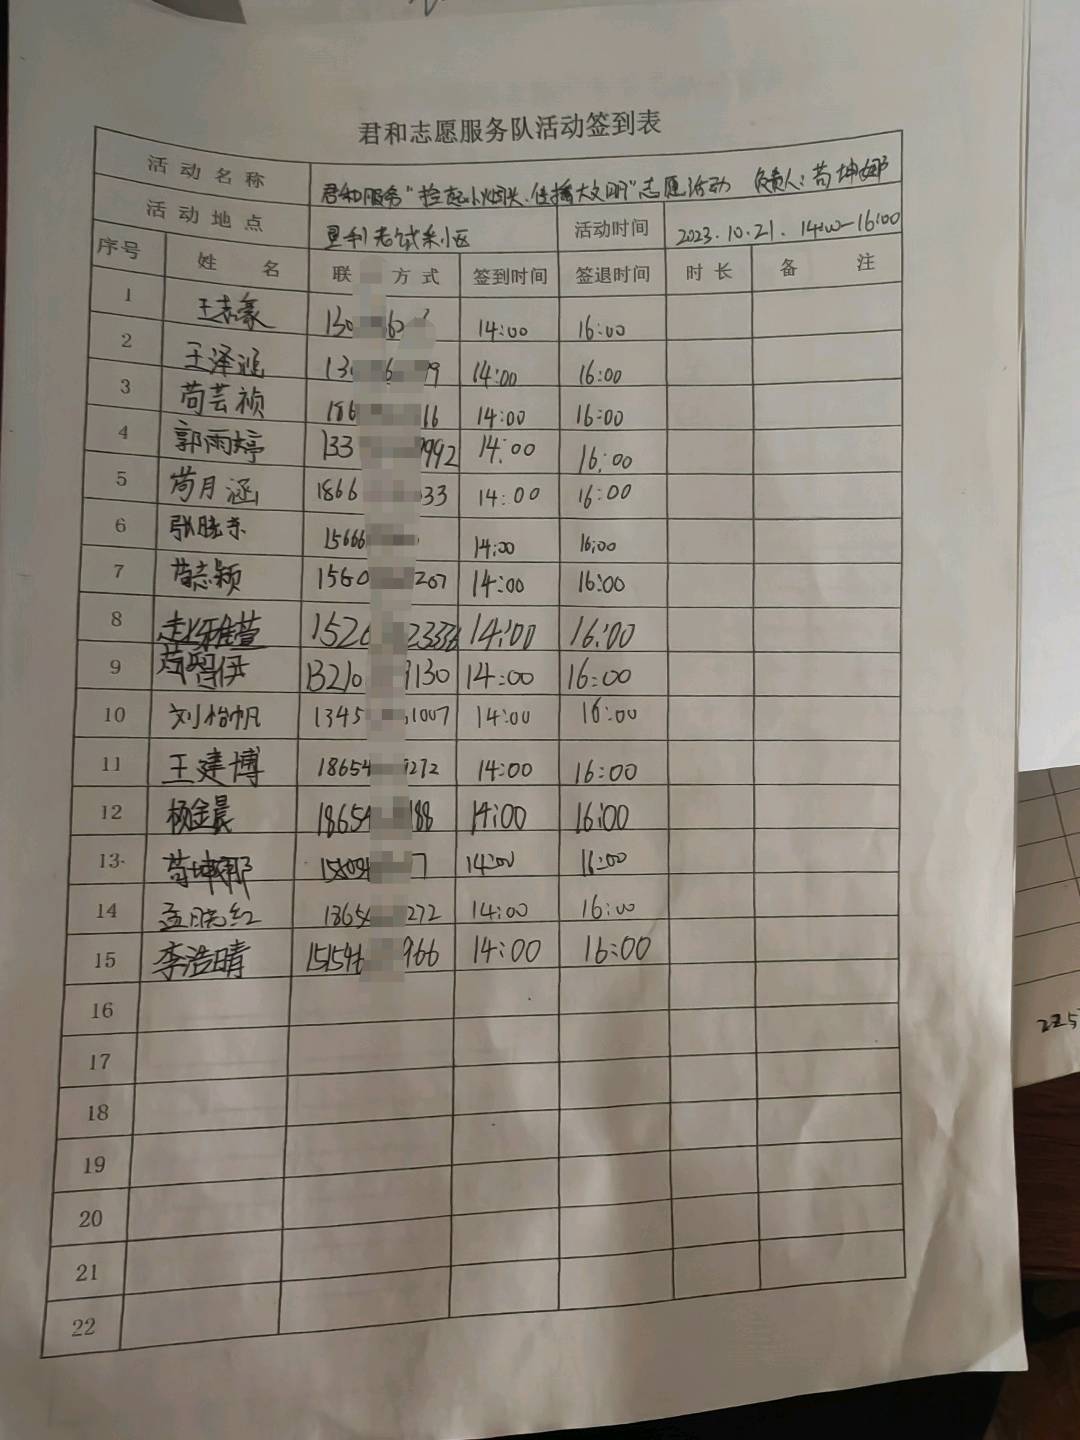 君和志愿服务队活动签到表
活动名称 君和服务“捡起小烟头,传播大文明”志愿活动 负责人:苟坤娜
活动地点 活动时间 2023.10.21. 14:00-16:00
序号 姓名 联 方式 签到时间 签退时间 时长 备注
1 王志豪 130 14:00 16:00
2 王泽鸿 13 14:00 16:00
3 苟芸祯 186 16 14:00 16:00
4 郭雨婷 133 9992 14:00 16:00
5 苟月涵 1866 033 14:00 16:00
6 张晓东 15666 14:00 16:00
7 苟志颖 1560 207 14:00 16:00
8 赵雅萱 1526 23336 14:00 16:00
9 13210 130 14:00 16:00
10 刘怡帆 1345 1007 14:00 16:00
11 王建博 18654 272 14:00 16:00
12 杨金晨 18654 188 14:00 16:00
13 苟坤娜 7 14:00 16:00
14 孟晓红 18654 272 14:00 16:00
15 李浩晴 966 14:00 16:00
16
17
18
19
20
21
22